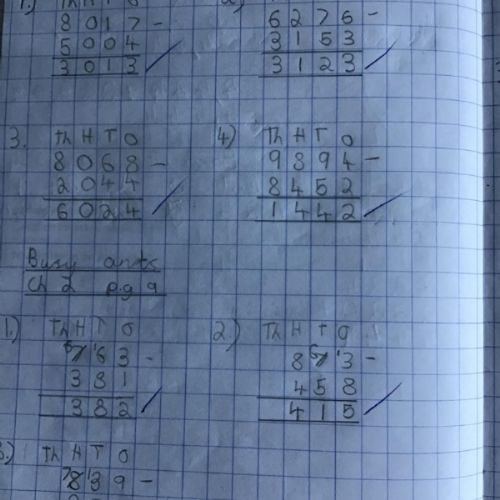 1.) Th H T O
8 0 1 7 -
5 0 0 4
3 0 1 3
2)
6 2 7 6 -
3 1 5 3
3 1 2 3
3. Th H T O
8 0 6 8 -
2 0 4 4
6 0 2 4
4) Th H T O
9 8 9 4 -
8 4 5 2
1 4 4 2
Busy ants
Ch 2 pg 9
1.) Th H T O
6 7 1 6 3 -
3 8 1
3 8 2
2) Th H T O
8 6 7 1 3 -
4 5 8
4 1 5
3.) Th H T O
7 8 1 3 9 -